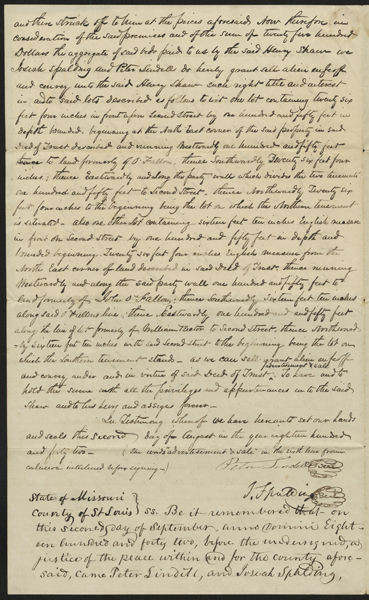 and then struck off to him at the prices aforesaid Now therefore in
consideration of the said premises and of the sum of twenty five hundred
Dollars the aggregate of said bids paid to us by the said Henry Shaw we
Josiah Spalding and Peter Lindell do hereby grant sell alien enfeoff
and convey unto the said Henry Shaw such right title and interest
in and to said lots described as follows to wit one lot containing twenty six
feet four inches in front upon Second Street by one hundred and fifty feet in
depth bounded, beginning at the North East corner of the said property in said
Deed of Trust described and running Westwardly one hundred and fifty feet
thence to land formerly of O'Fallon, thence Southwardly Twenty six feet four
inches; thence Eastwardly and along the party wall which divides the two tenements
one hundred and fifty feet to Second Street, thence Northwardly Twenty six
feet four inches to the beginning being the lot on which the Northern tenement
is situated - also one other lot containing sixteen feet ten inches English measure
in front on Second Street by one hundred and fifty feet in depth and
bounded beginning Twenty six feet four inches English measure from the
North East corner of land described in said Deed of Trust, thence running
Westwardly and along the said party wall one hundred and fifty feet to
land formerly of John O'Fallon; thence Southwardly sixteen feet ten inches
along said O'Fallons line; thence Eastwardly one hundred and fifty feet
along the line of lot formerly of William to Second Street, thence Northward-
ly Sixteen feet ten inches with said Second Street to the beginning being the lot on
which the Southern tenement stands - as we can sell grant alien enfeoff
and convey under and in virtue of said Deed of Trust - To have and to
hold the same with all the privileges and appurtenances unto the said
Shaw and to his heirs and assigns forever -
In Testimony whereof we have hereunto set our hands
and seals this Second day of August in the year eighteen hundred
and forty two -
Peter Lindell Seal
J. Spalding Seal
State of Missouri
County of St Louis } SS. Be it remembered that on
this second day of September, anno Domini Eight-
een hundred and forty two, before the undersigned, a
justice of the peace within and for the county afore-
said, came Peter Lindell, and Josiah Spalding,